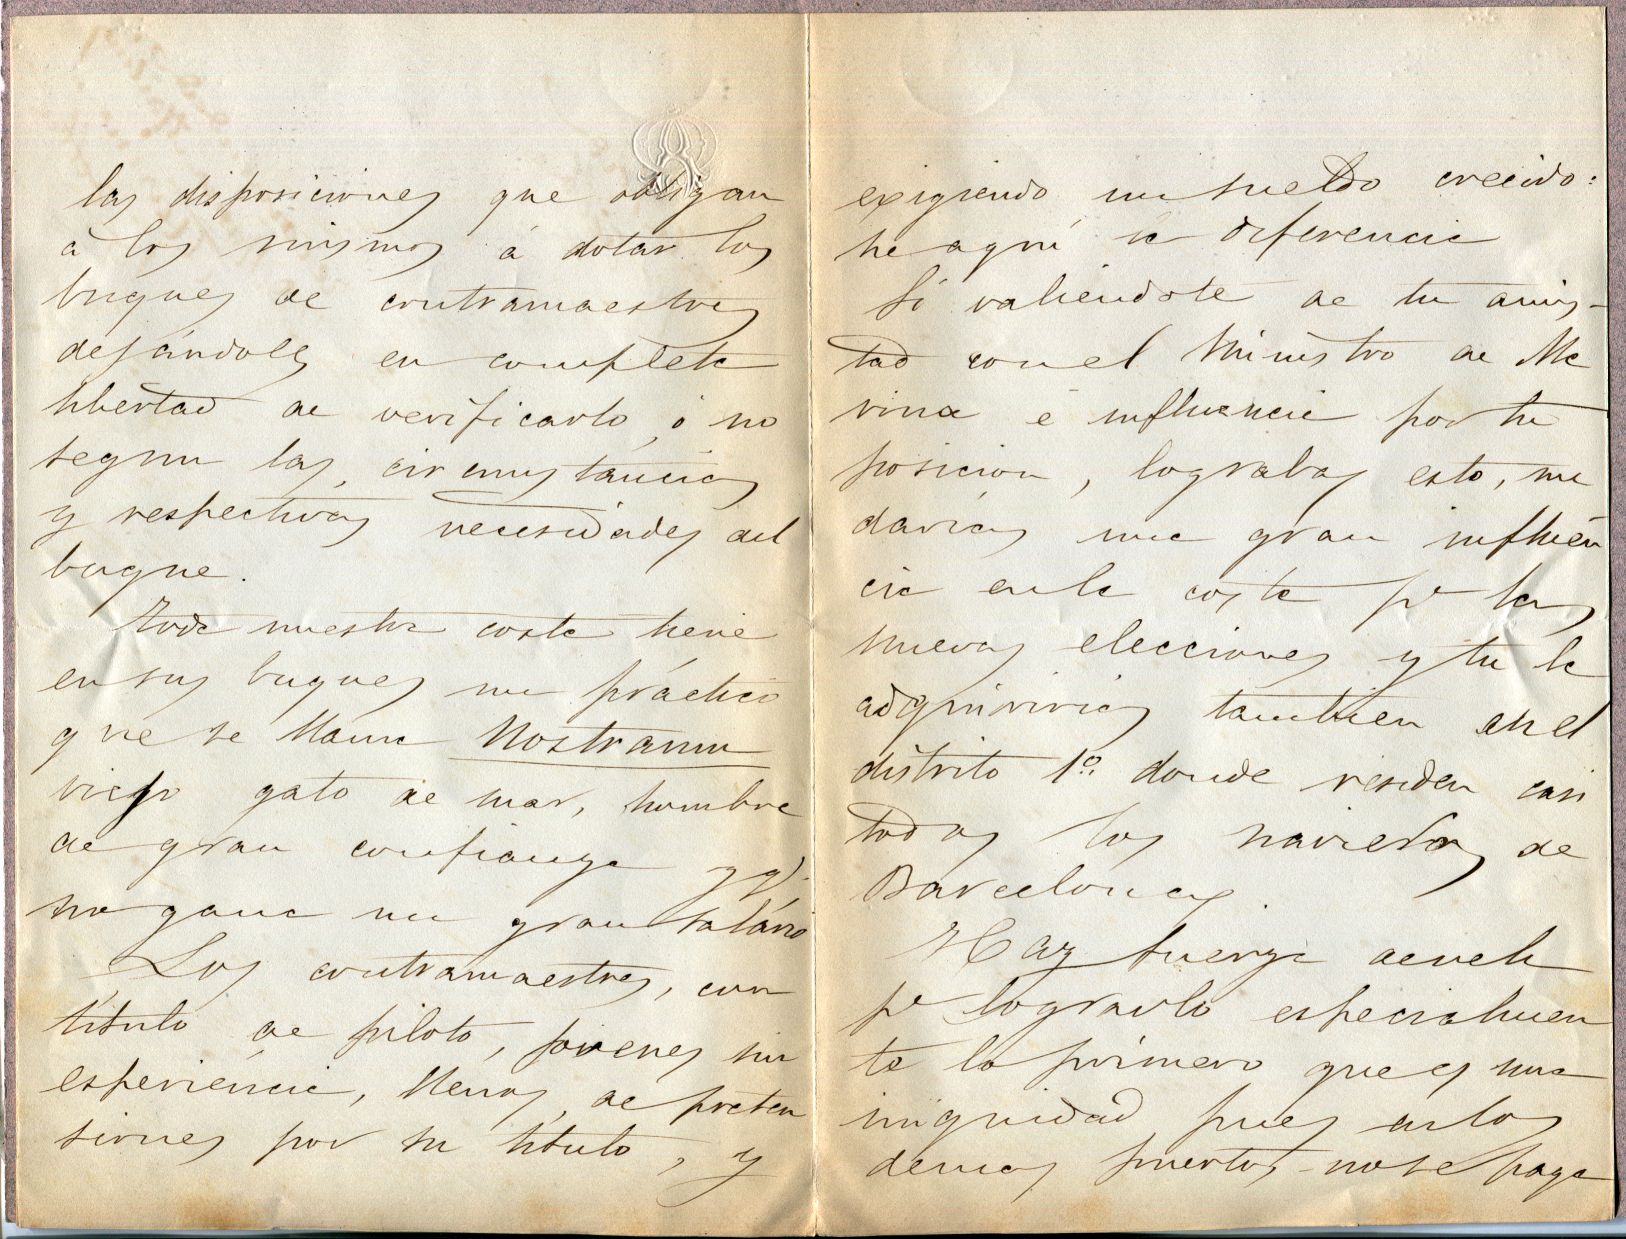 las disposiciones que obligan
á los mismos á dotar los
buques de contramaestres
dejándoles en completa
libertad de verificarlo, ó no
segun las, circunstancias
y respectivas necesidades del
buque.
Toda nuestra costa tiene
en sus buques un práctico
que se llama Nostramu
viejo gato de mar, hombre
de gran confianza y q.
no gana un gran salário
Los contramaestres, con
título de piloto, jovenes sin
esperiéncia, llenos, de preten
siones por su título, y
exigiendo un sueldo crecido:
he aquí la diferencia
Si valiendote de tu amis-
tad con el Ministro de Ma
rina é influencia por tu
posicion, lograbas esto, me
darías una gran influén
cia en la costa pª las
nuevas elecciones y tu la
adquiririas tambien en el
distrito 1º donde residen casi
todos los navieros de
Barcelona.
Haz fuerza de vela
pª lograrlo especialmen
te lo primero que es una
iniquidad pues en los
demas puertos no se paga